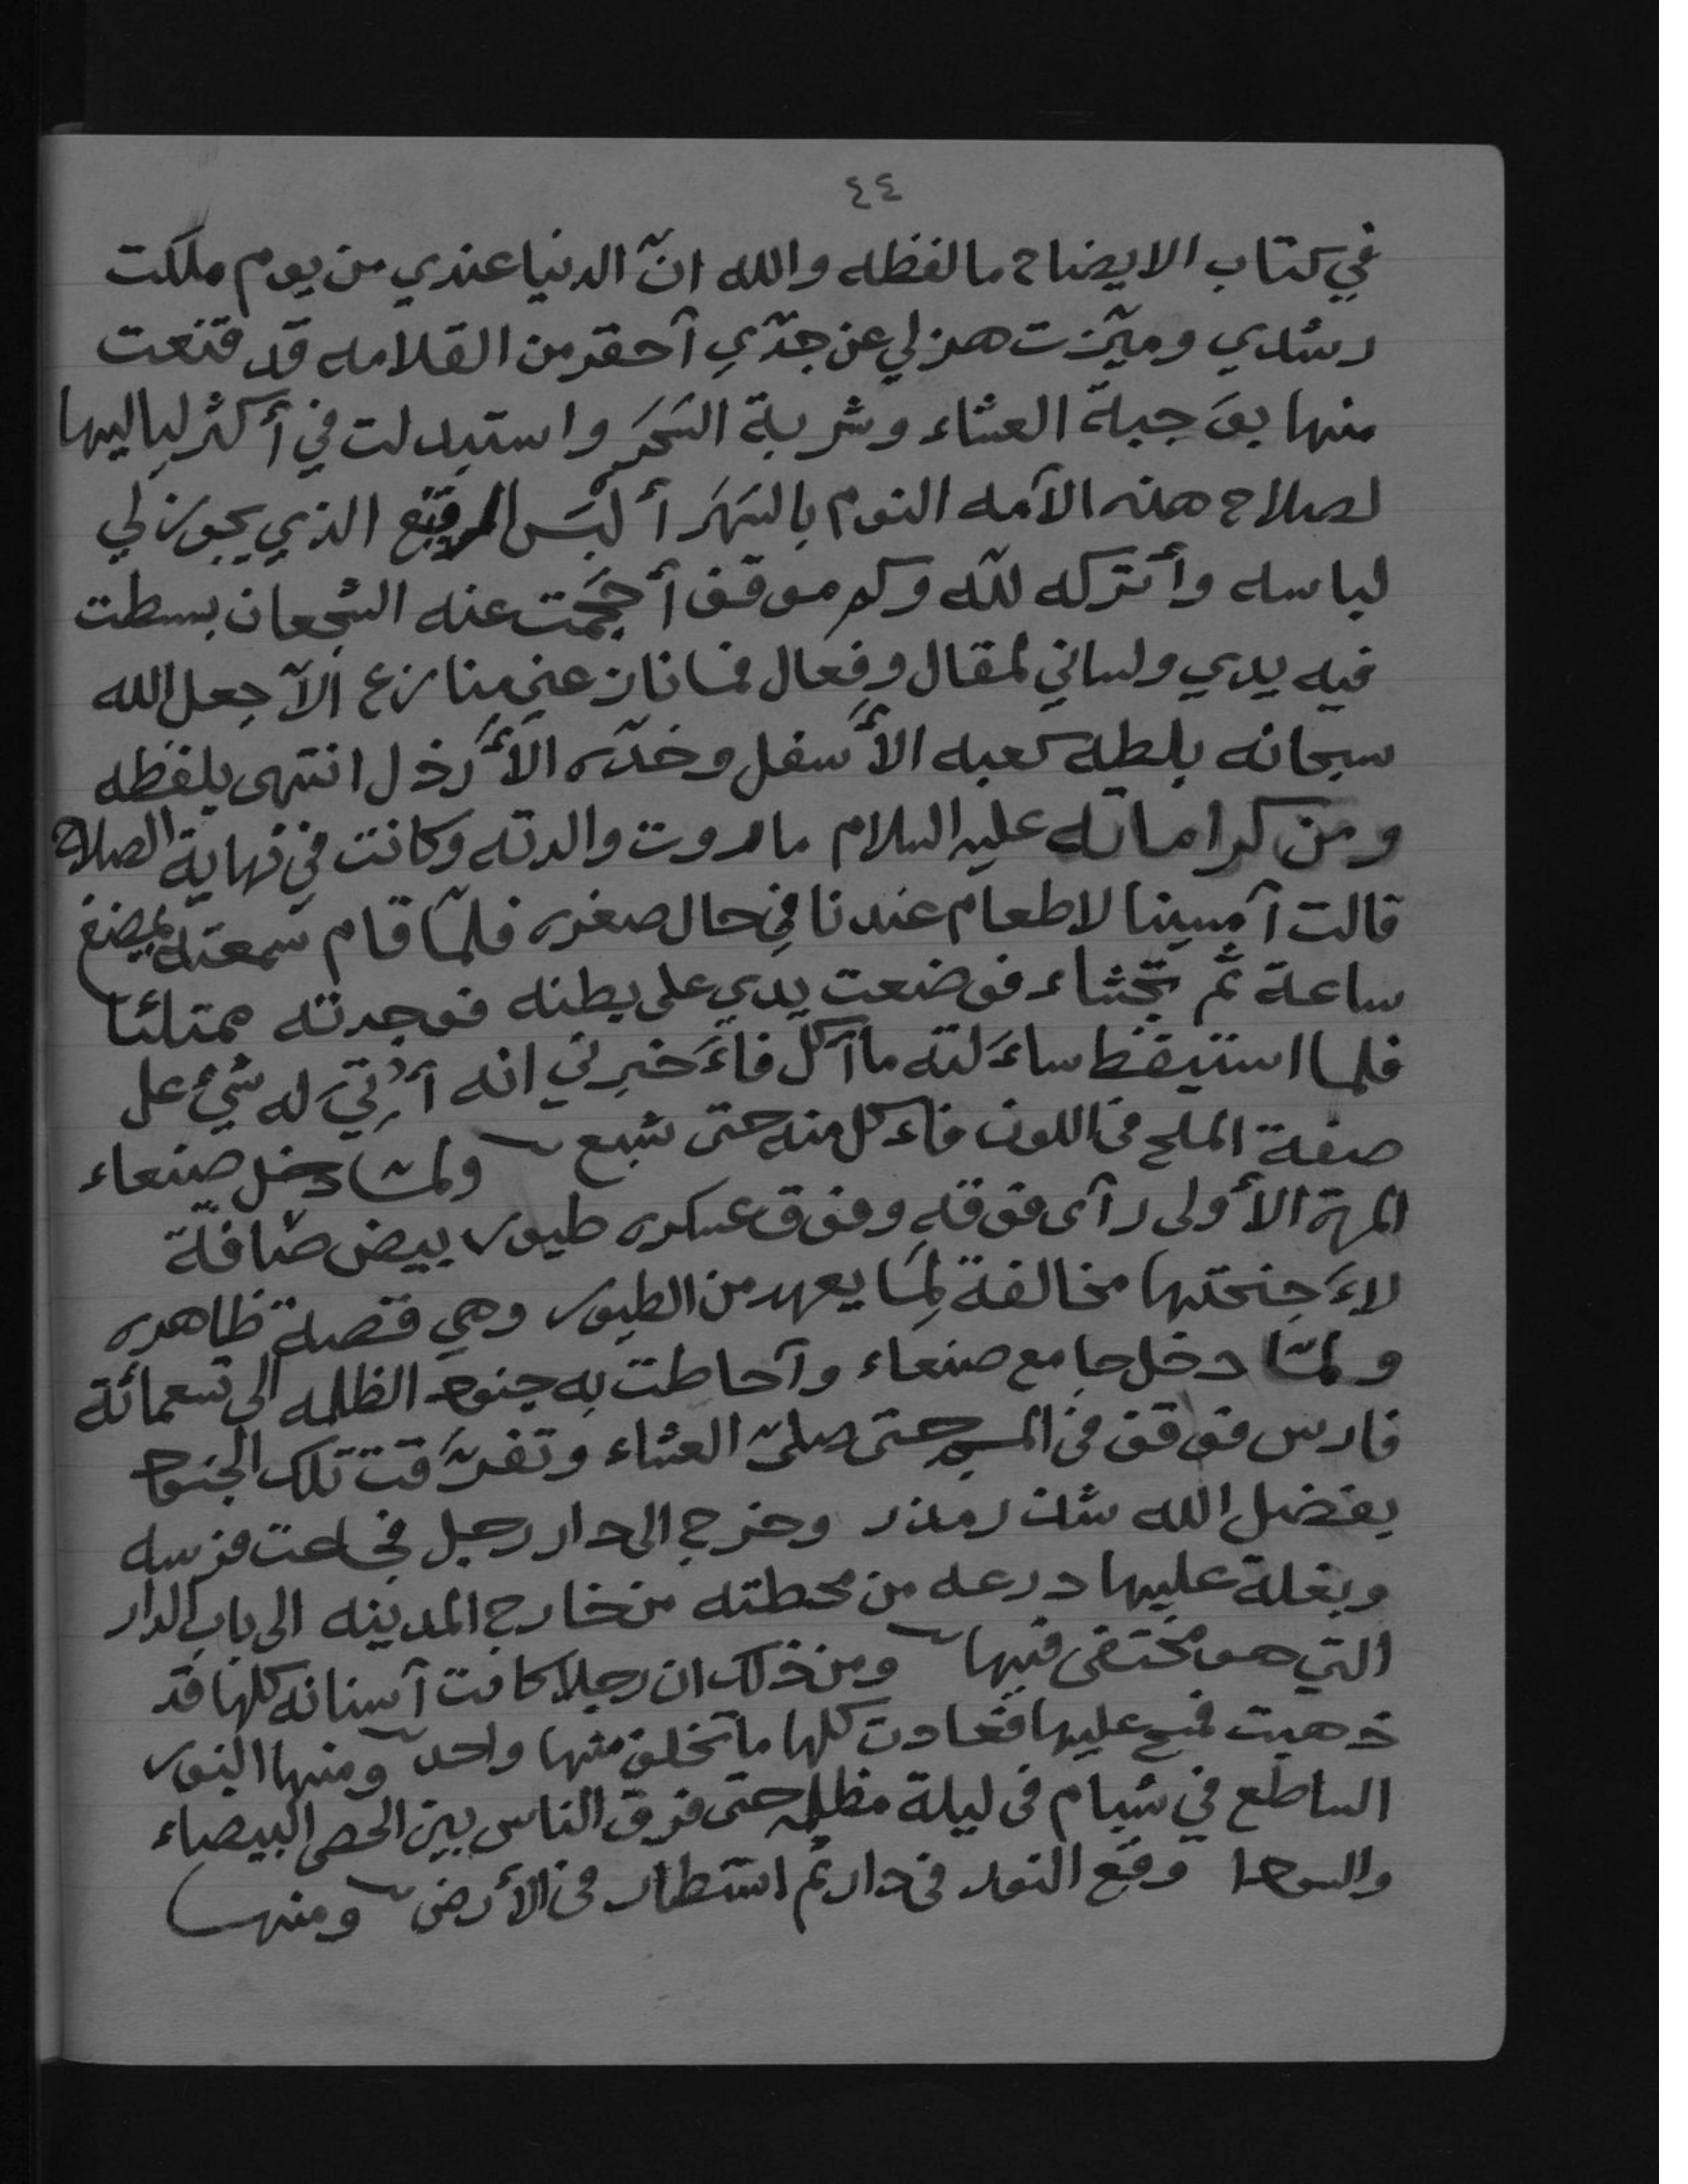 ٤٤
في كتاب الايضاح ما لفظه والله انّ الدنيا عندي من يوم ملكت
رشدي وميّزت هزلي عن جدّي أحقر من القلامه قد قنعت
منها بوَجبة العشاء وشربة السَحَر واستبدلت في أكثر لياليها
لصلاح هذه الآمه النوم بالسَهَر ألبَس المرقّع الذي يجوز لي
لباسه وأتركه للّه وكم موقف أجحَمت عنه الشجعان بسطت
فيه يدي ولساني لمقال وفِعال فما نازعني منازع الّا جعل الله
سبحانه بلطه كعبه الأسفل وخدّه الأرذل انتهى بلفظه
ومن كراماته عليه السلام ما روت والدته وكانت في نهاية الصلاح
قالت آمسينا لا طعام عندنا في حال صغره فلمّا قام سمعته يمضغ
ساعة ثم تجشاء فوضعت يدي على بطنه فوجدته ممتلئا
فلما استيقظ ساءَلته ما آكل فاءَخبرني انه أُرتي له شيء على
صفة الملح في اللون فاءكل منه حتى شبع ولمّا دخل صنعاء
المرة الأولى رآى فوقه وفوق عسكره طيور بيض صَافّة
لاءَجنحتها مخالفة لِمَا يعهد من الطيور وهي قصة ظاهره
ولمّا دخل جامع صنعاء وآحاطت به جنود الظلمه الى تسعمائة
فارس فوقف في المسجد حتى صلىّ العشاء وتفرّقت تلك الجنود
بفضل الله شذر مذر وخرج الى دار رجل فجاءت فرسه
وبغلة عليها درعه من محطته من خارج المدينه الى باب الدار
التي هو مختفى فيها ومن ذلك ان رجلا كانت آسنانه كلها قد
ذهبت فمسح عليها فعادت كلها ما تخلف منها واحد ومنها النور
الساطع في شبام في ليلة مظلمه حتى فرق الناس بين الحصى البيضاء
والسودا وقع النور في دار ثم استطار في الأرض ومنها